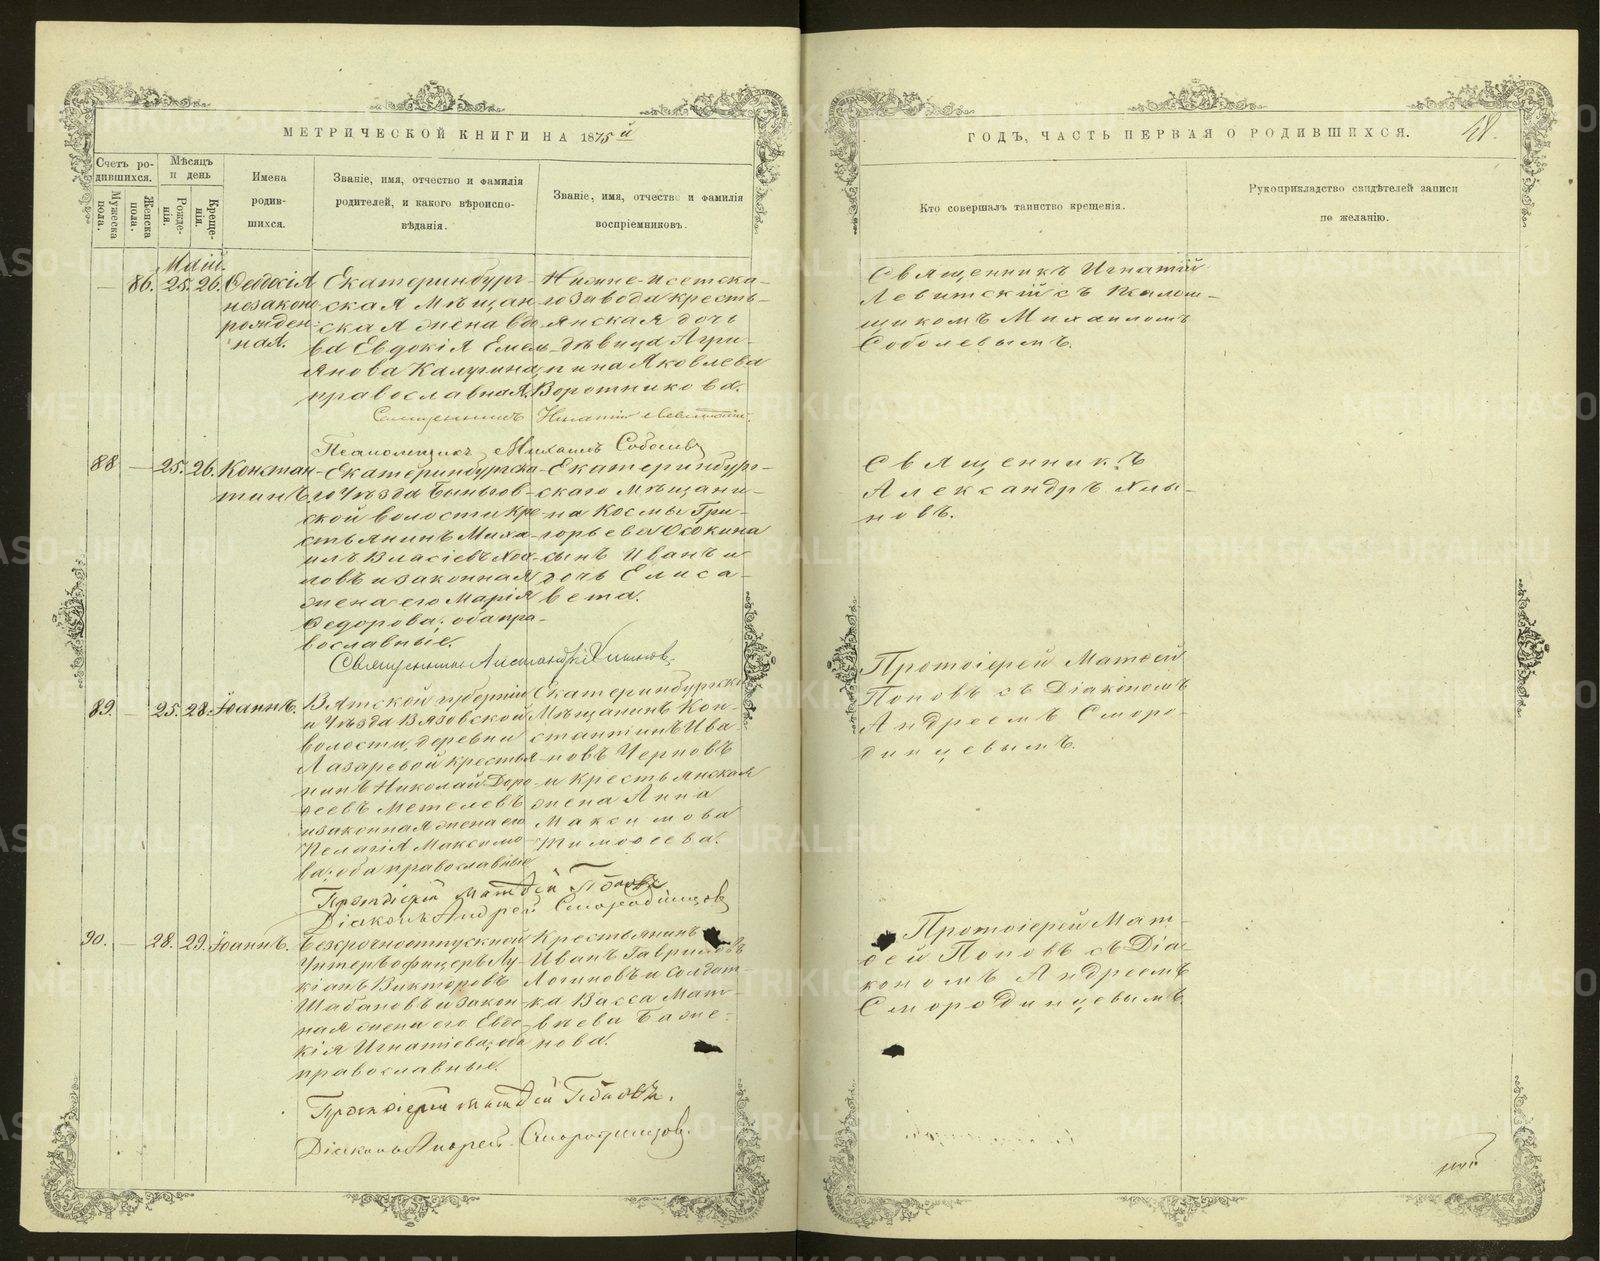 МЕТРИЧЕСКОЙ КНИГИ НА 1875й
Счетъ ро-
дившихся.
Мужеска пола.
Женска пола.
Мѣсяцъ
и день
Рожде-
нія.
Креще-
нія.
Имена
родив-
шихся.
Званіе, имя, отчество и фамилія
родителей, и какого вѣроиспо-
вѣданія.
Званіе, имя, отчество и фамилія
воспріемниковъ.
Май.
86. 25. 26.
незаконо
рожден-
ная.
Екатеринбург-
ская Мѣщан-
ская жена вдо
ва Евдокія Емель-
янова Калугина,
православная.
Нижне-Исетска-
го Завода кресть-
янская дочь
дѣвица Агри-
пина Яковлева
Воротникова.
Священникъ Игнатій Левитскій.
Псаломщикъ Михаилъ Соболевъ
88 — 25. 26. Констан-
тинъ
Екатеринбургска-
го Уѣзда
ской волости кре
стьянинъ Миха-
илъ Власіевъ
ловъ и законная
жена его Марія
Ѳедорова; оба пра-
вославные.
Екатеринбург-
скаго Мѣщани-
на Космы Гри-
горьева Осокина
сынъ Иванъ и
дочь Елиса-
вета.
Священникъ Александръ Хлыновъ.
89. — 25. 28. Іоаннъ.
Вятской губерніи
и Уѣзда Вязовской
волости, деревни
Лазаревой крестья
нинъ Николай Доро-
ѳеевъ Метелевъ
и законная жена его
Пелагія Максимо-
ва; оба православные
Екатеринбургскій
Мѣщанинъ Кон-
стантинъ Ива-
новъ Черновъ
и крестьянская
жена Анна
Максимова
Тимоѳеева.
Протоіерей Матѳей Поповъ
Діаконъ Андрей Смородинцовъ
90. — 28. 29. Іоаннъ.
Безсрочноотпускной
Унтеръ офицеръ Лу-
кіанъ Викторовъ
Шабановъ и закон-
ная жена его Евдо-
кія Игнатіева; оба
православные.
Крестьянинъ
Иванъ Гавриловъ
Логиновъ и солдат-
ка Васса Мат-
вѣева Баже-
нова.
Протоіерей Матѳей Поповъ.
Діаконъ Андрей Смородинцовъ
ГОДЪ, ЧАСТЬ ПЕРВАЯ О РОДИВШИХСЯ.
Кто совершалъ таинство крещенія.
Рукоприкладство свидѣтелей записи
по желанію.
Священникъ Игнатій
Левитскій съ Псалом-
щикомъ Михаиломъ
Соболевымъ.
Священникъ
Александръ Хлы-
новъ.
Протоіерей Матѳей
Поповъ съ Діакономъ
Андреемъ Сморо-
динцевымъ.
Протоіерей Мат-
ѳей Поповъ съ Діа-
кономъ Андреемъ
Смородинцевымъ.
METRIKI.GASO-URAL.RU